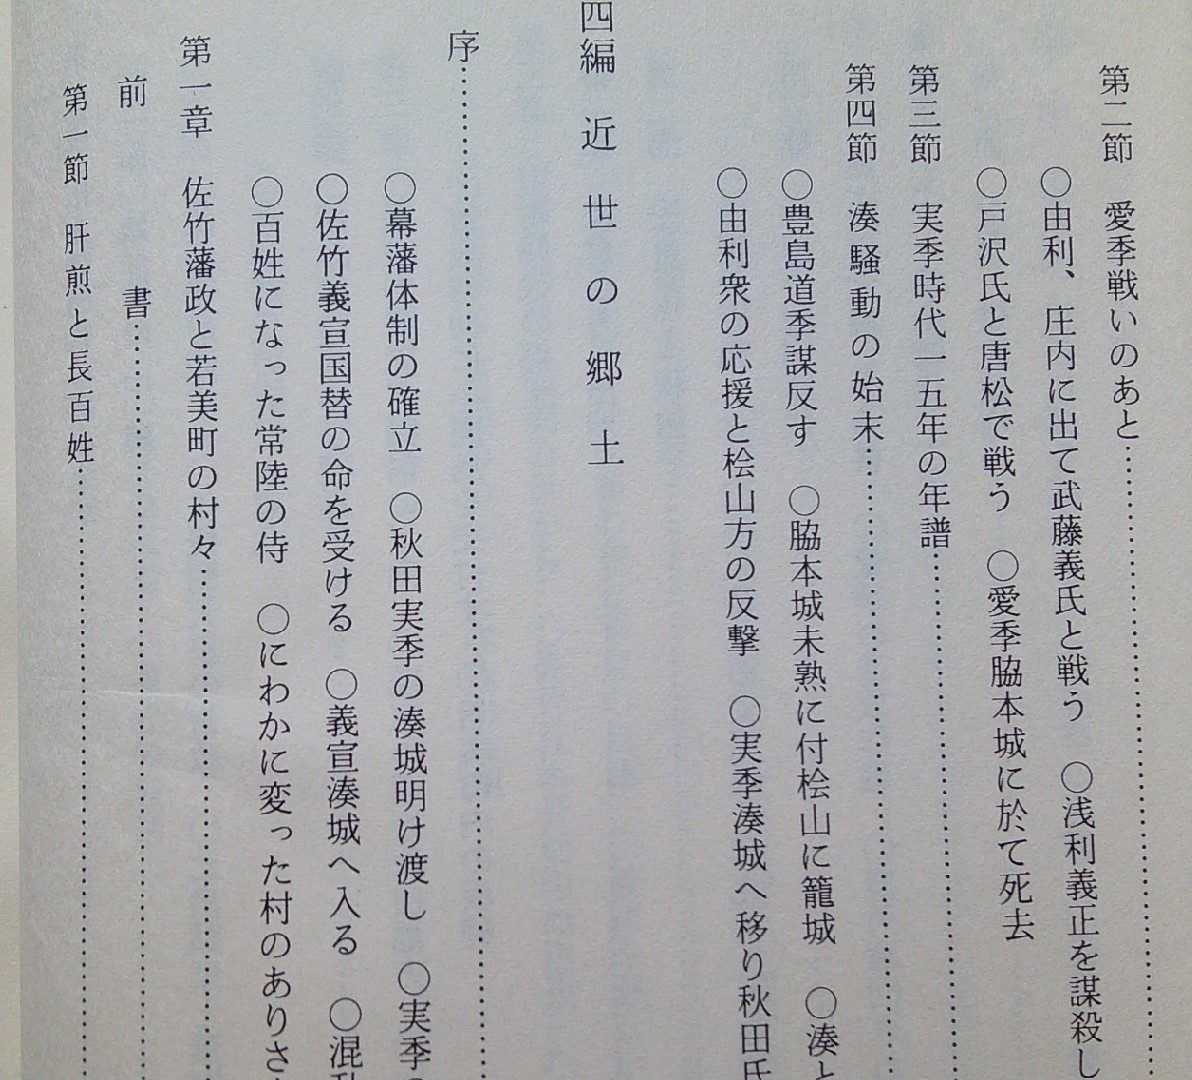 第二節　愛季戦いのあと
○由利、庄内に出て武藤義氏と戦う　○浅利義正を謀殺し
○戸沢氏と唐松で戦う　○愛季脇本城に於て死去
第三節　実季時代一五年の年譜
第四節　湊騒動の始末
○豊島道季謀反す　○脇本城未熟に付桧山に籠城　○湊と
○由利衆の応援と桧山方の反撃　○実季湊城へ移り秋田氏
四編　近世の郷土
序
○幕藩体制の確立　○秋田実季の湊城明け渡し　○実季の
○佐竹義宣国替の命を受ける　○義宣湊城へ入る　○混乱
○百姓になった常陸の侍　○にわかに変った村のありさ
第一章　佐竹藩政と若美町の村々
前　書
第一節　肝煎と長百姓